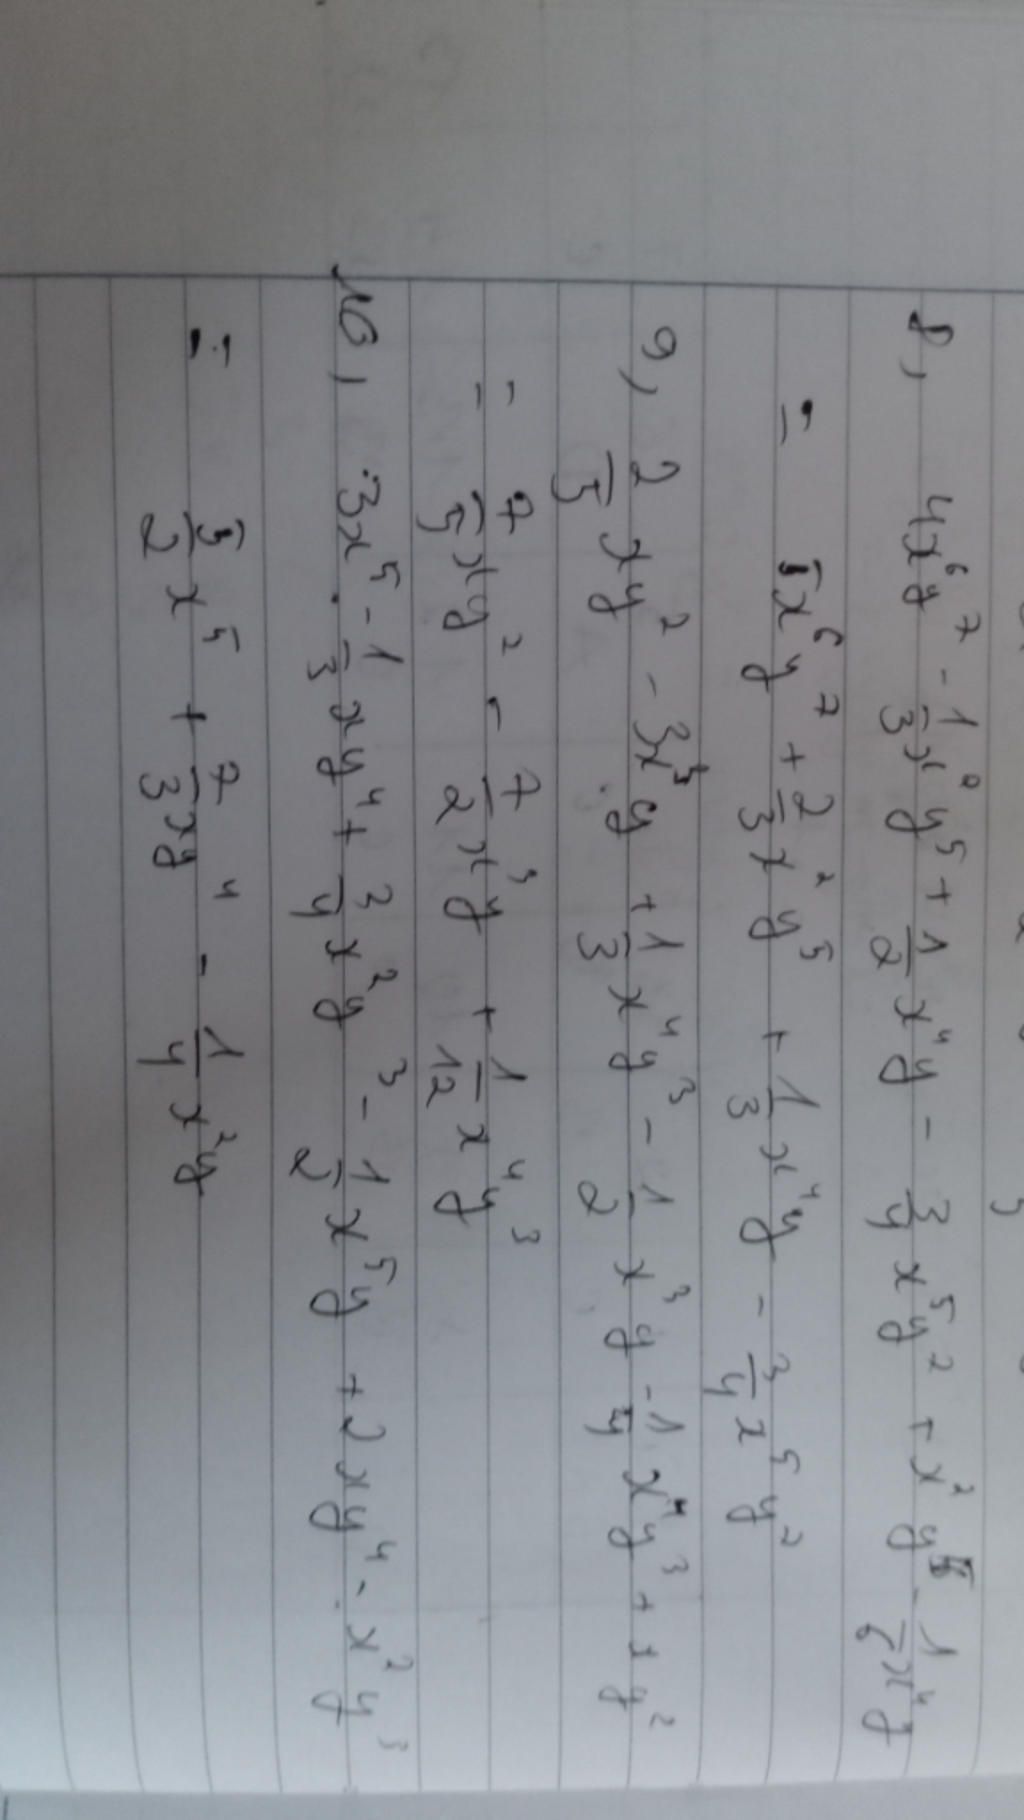 8, 4x⁶y⁷ - 1/3 x²y⁵ + 1/2 x⁴y - 3/4 x⁵y² + x²y⁵ - 1/6 x⁴y
= 5x⁶y⁷ + 2/3 x²y⁵ + 1/3 x⁴y - 3/4 x⁵y²
9, 2/5 xy² - 3x³y + 1/3 x⁴y³ - 1/2 x³y - 1/4 x⁴y³ + xy²
= 7/5 xy² - 7/2 x³y + 1/12 x⁴y³
10, 3x⁵ - 1/3 xy⁴ + 3/4 x²y³ - 1/2 x⁵y + 2xy⁴ - x²y³
= 5/2 x⁵ + 7/3 xy⁴ - 1/4 x²y